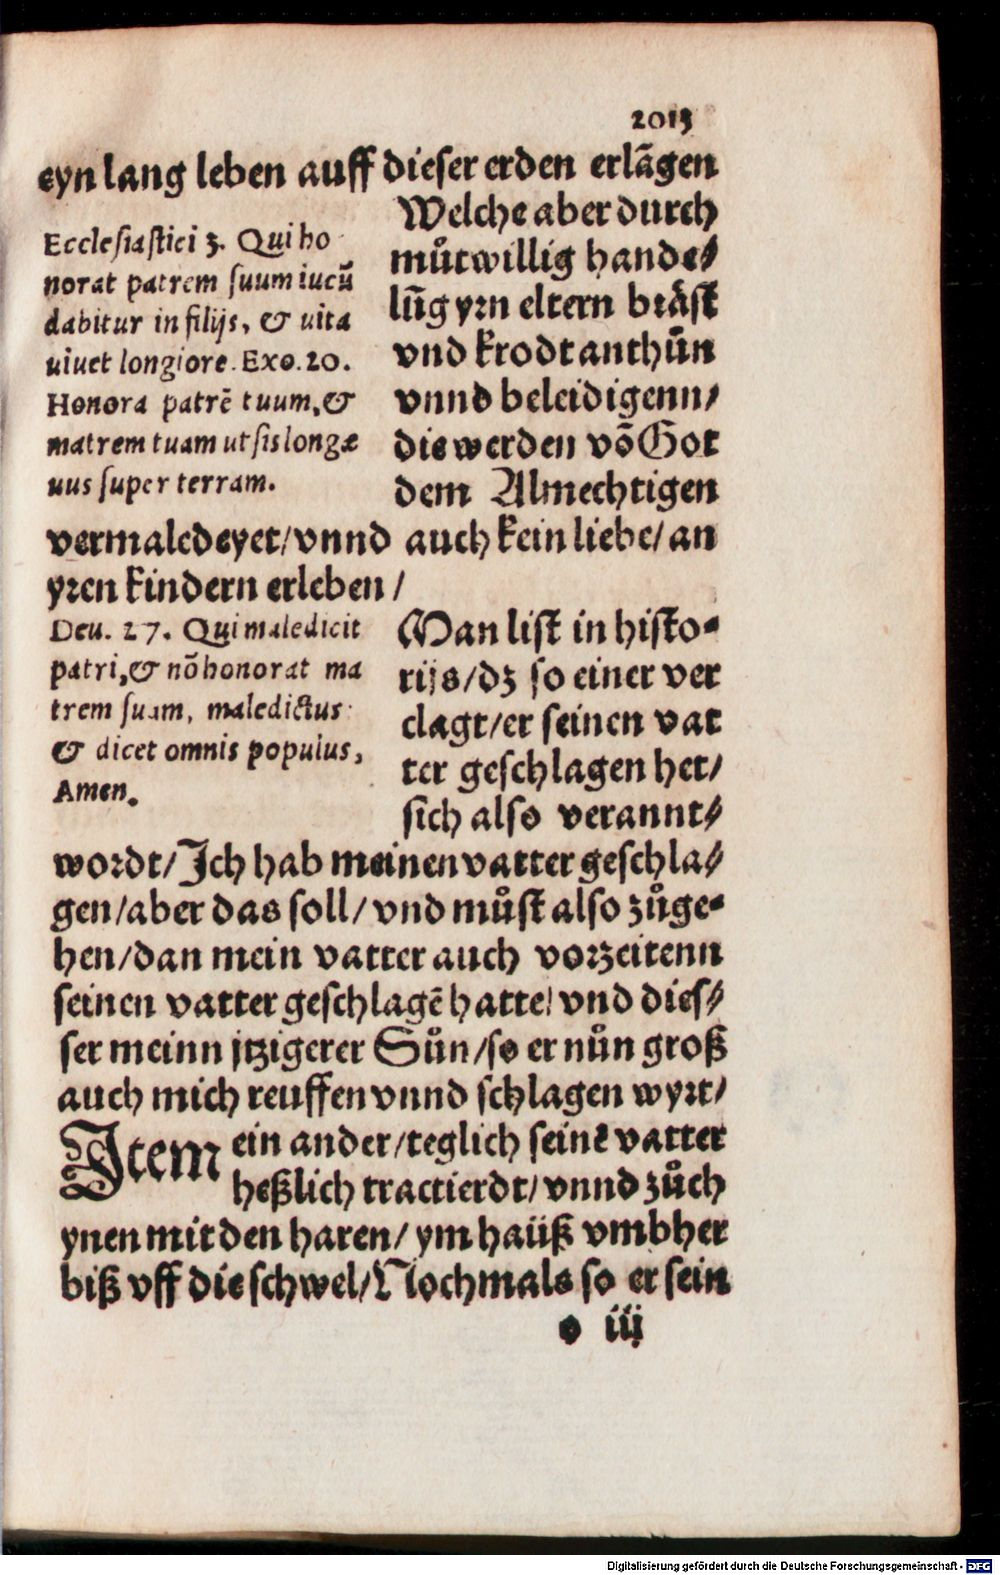 2013
eyn lang leben auff dieser erden erlãgen
Ecclesiastici 3. Qui ho
norat patrem suum iucũ
dabitur in filijs, & uita
uiuet longiore. Exo. 20.
Honora patrẽ tuum, &
matrem tuam ut sis longæ
uus super terram.
Welche aber durch
můtwillig hande⸗
lũg yrn eltern bråst
vnd krodt anthůn
vnnd beleidigenn/
die werden võ Got
dem Almechtigen
vermaledeyet/vnnd auch kein liebe/an
yren kindern erleben/
Deu. 27. Qui maledicit
patri, & nõ honorat ma
trem suam, maledictus
& dicet omnis populus,
Amen.
Man list in histo⸗
rijs/dz so einer ver
clagt/er seinen vat
ter geschlagen het/
sich also verannt⸗
wordt/Ich hab meinen vatter geschla⸗
gen/aber das soll/vnd můst also zůge⸗
hen/dan mein vatter auch vorzeitenn
seinen vatter geschlagẽ hatte/vnd dies⸗
ser meinn jtzigerer Sůn/so er nůn groß
auch mich reuffen vnnd schlagen wyrt/
Item ein ander/teglich seinẽ vatter
heßlich tractierdt/vnnd zůch
ynen mit den haren/ym haüß vmbher
biß vff die schwel/Nochmals so er sein
o iij
Digitalisierung gefördert durch die Deutsche Forschungsgemeinschaft - DFG